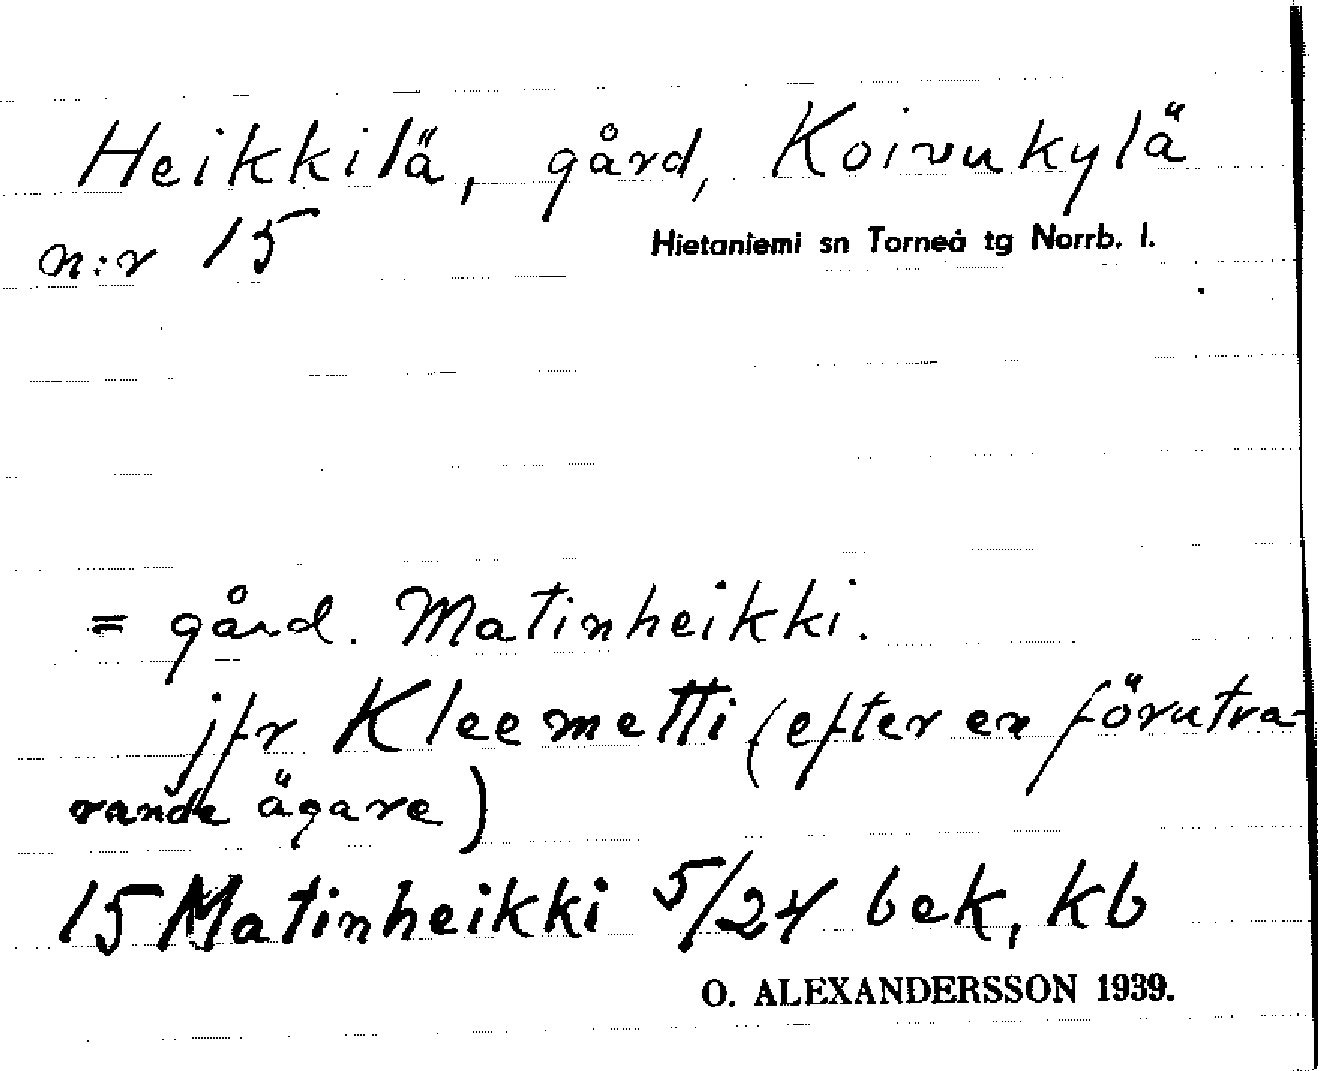 Heikkilä, gård, Koivukylä
n:r 15
Hietaniemi sn Torneå tg Norrb. l.
= gård. Matinheikki.
jfr Kleemetti (efter en förutva-
rande ägare)
15 Matinheikki 5/24 bek, kb
O. ALEXANDERSSON 1939.